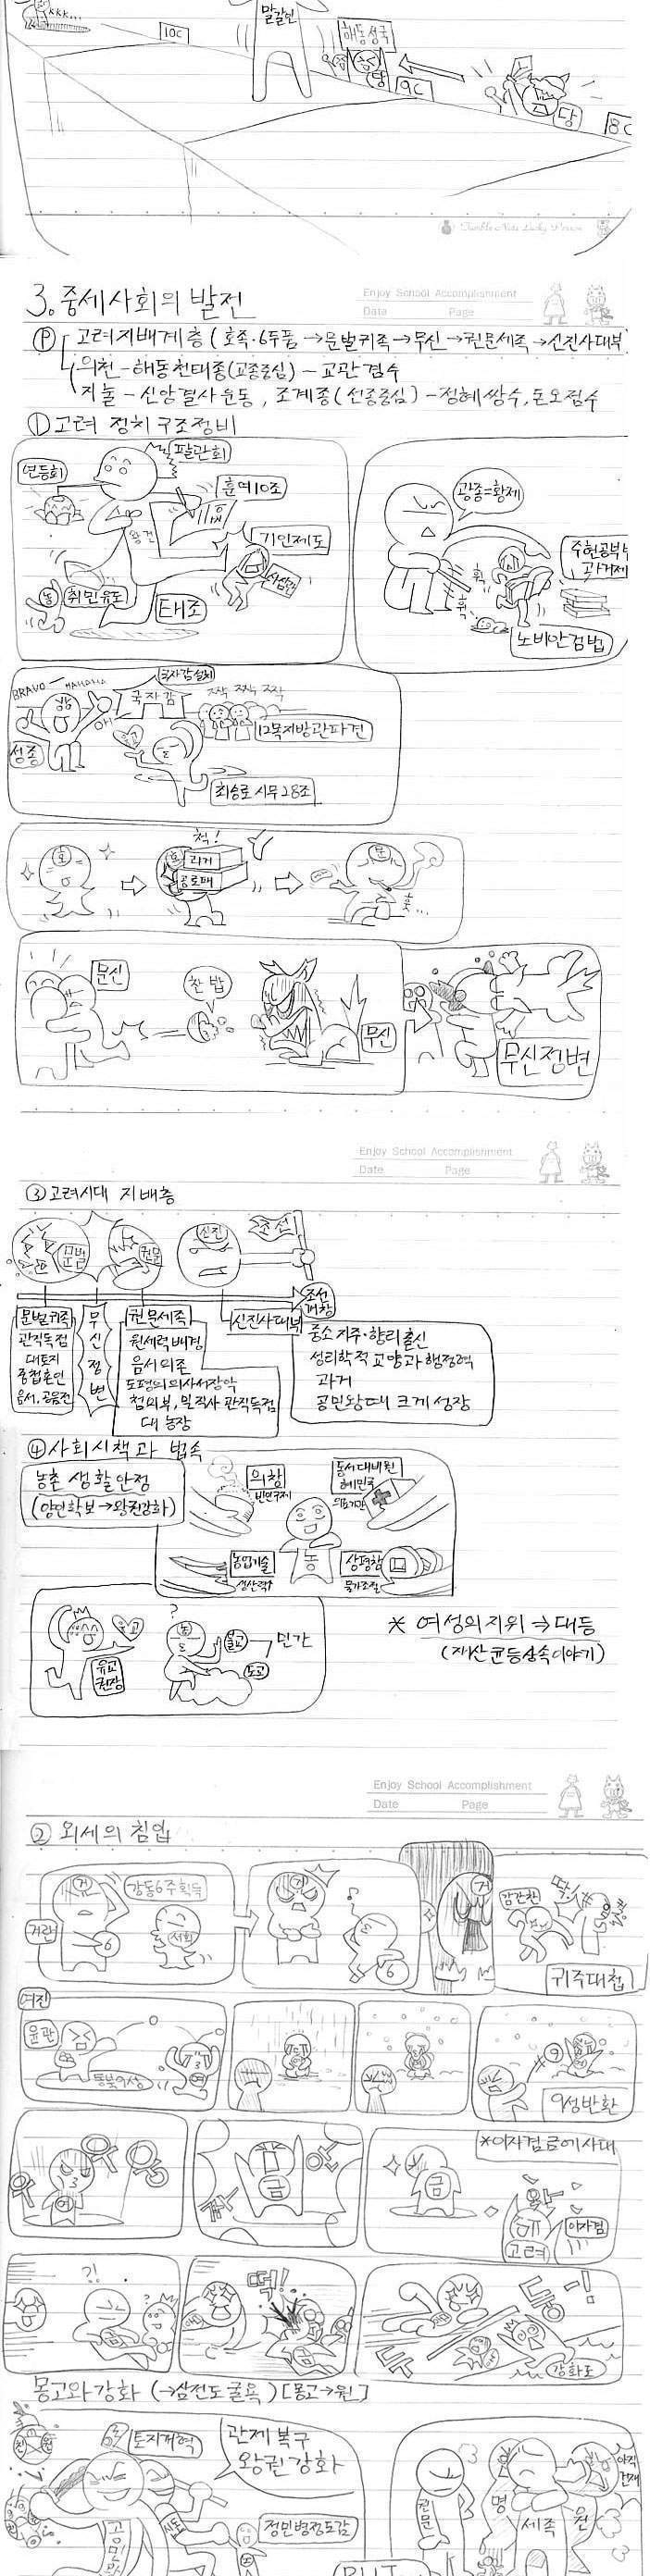 KKK...
10C
말갈인
해동성국
당
9C
당
8C
Tumble Note Lucky Person
3. 중세사회의 발전
Enjoy School Accomplishment
Date Page
Ⓟ 고려지배계층 (호족·6두품→문벌귀족→무신→권문세족→신진사대부)
의천-해동천태종(교종중심)-교관겸수
지눌-신앙결사운동, 조계종(선종중심)-정혜쌍수, 돈오점수
① 고려 정치 구조정비
연등회
팔관회
훈요10조
왕건
기인제도
사심관
취민유도
태조
광종=황제
주현공부법
과거제
노비안검법
BRAVO
국자감설치
국자감
짝짝 짝짝 짝짝
성종
12목지방관파견
유교
최승로 시무28조
호
척!
과거
공로패
문
훗...
문신
찬밥
무신
무신정변
Enjoy School Accomplishment
Date Page
③ 고려시대 지배층
문벌
권문
신진
조선
조선개창
문벌귀족
관직독점
대토지
중첩혼인
음서, 공음전
무신정변
권문세족
원세력배경
음서의존
도평의의사사장악
첨의부, 밀직사 관직독점
대 농장
신진사대부
중소지주·향리출신
성리학적 교양과 행정력
과거
공민왕때 크게 성장
④ 사회시책과 법속
농촌 생활안정
(양민확보→왕권강화)
의창
빈민구제
동서대비원
혜민국
의료기관
농
농업기술
생산력↑
상평창
물가조절
유교
유교권장
?
불교
도교
민간
* 여성의지위⇒대등
(재산균등상속이야기)
Enjoy School Accomplishment
Date Page
② 외세의 침입
거란
강동6주획득
서희
6
강감찬
딱!
귀주대첩
여진
윤관
동북9성
여
9
9성반환
금
*이자겸 금에사대
이자겸
고려
?!
떡!
두둥-!
강화도
몽고와강화 (→삼전도굴욕) [몽고→원]
친원
토지개혁
관제 복구
왕권강화
공민왕
신돈
전민변정도감
권문
명
세족
원
아직건재
BUT